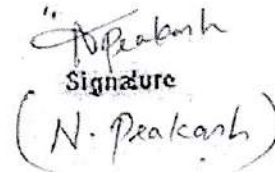 "
N Peakash
Signature
(N. Peakash)